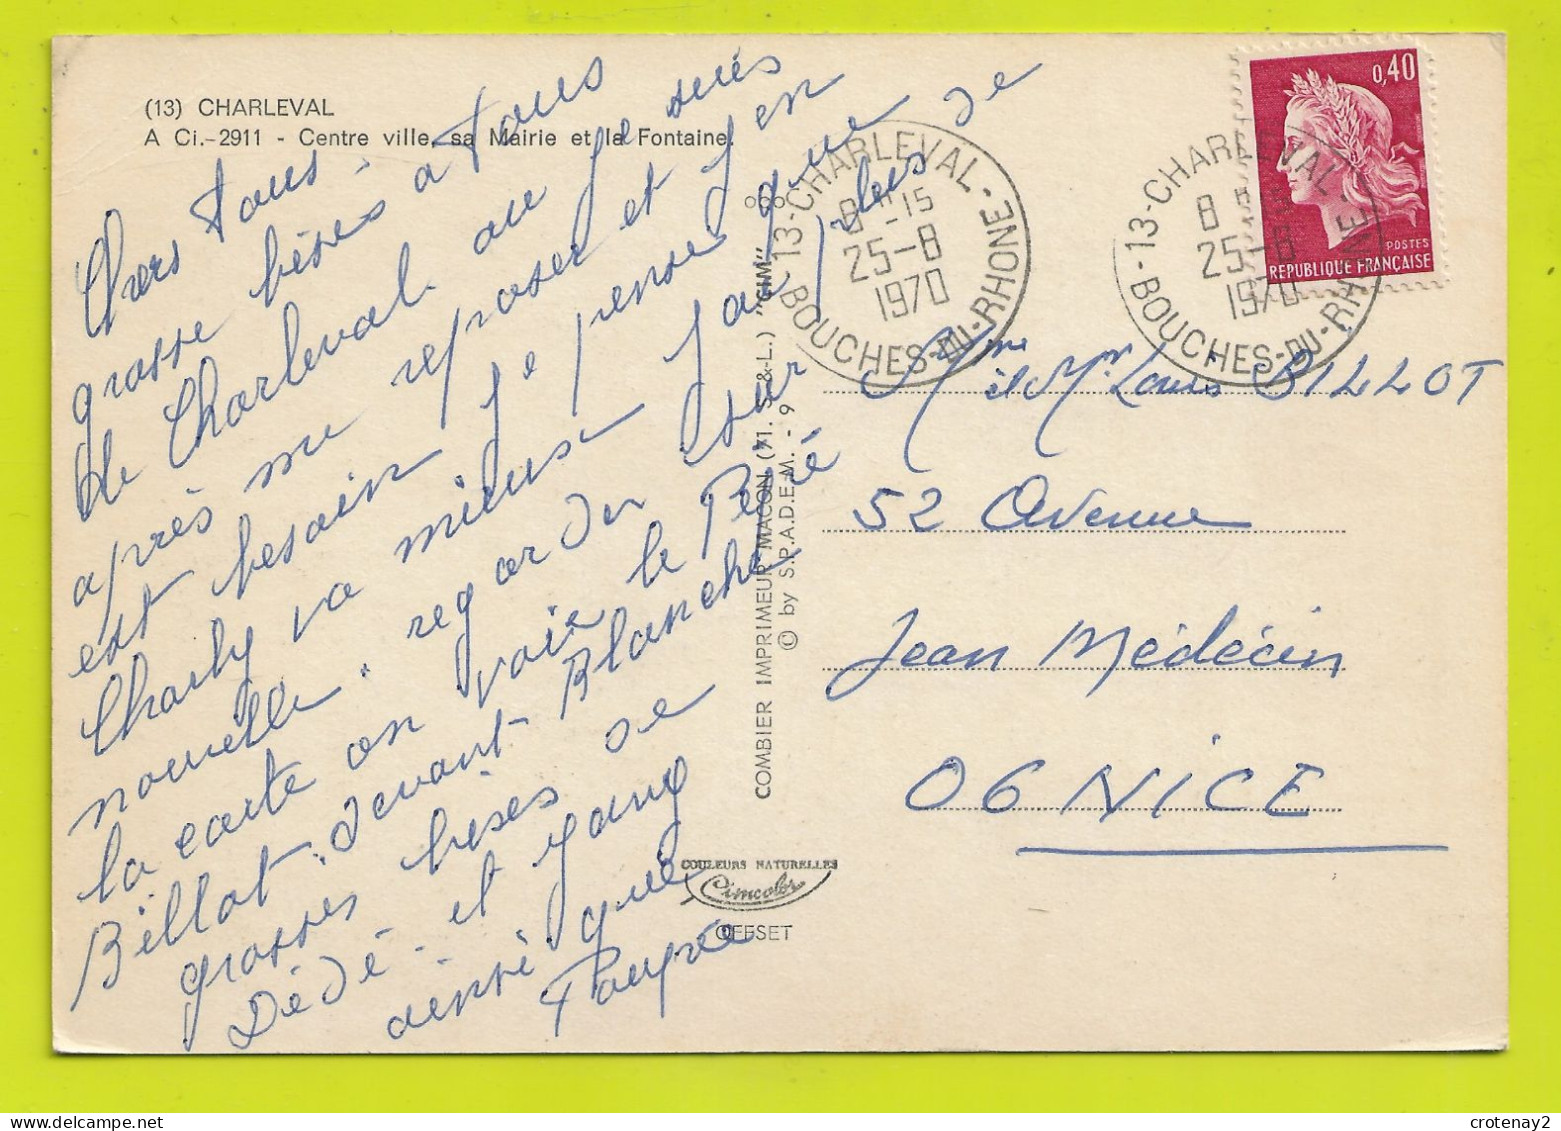 (13) CHARLEVAL
A Ci.-2911 - Centre ville, sa Mairie et la Fontaine.
Chers tous.
grosse bises a tous
de Charleval ou je suis
après me reposer et j en
est besoin je pense que
Charly va mieux
nouvelle regarder sur
la carte on voie le Pépé
Billot devant Blanche
grosses bises de
Dédé et
ainsi que
COMBIER IMPRIMEUR MACON (71. S.-&-L.) "CIM"
© by S.P.A.D.E.M. - 9
COULEURS NATURELLES
Cimcolor
OFFSET
13-CHARLEVAL-
8 H-15
25-8
1970
BOUCHES-DU-RHONE
13-CHARLEVAL-
8 H
25-8
1970
BOUCHES-DU-RHONE
0,40
POSTES
REPUBLIQUE FRANÇAISE
Mme et Mr Louis BILLOT
52 Avenue
Jean Médécin
06 NICE
crotenay2